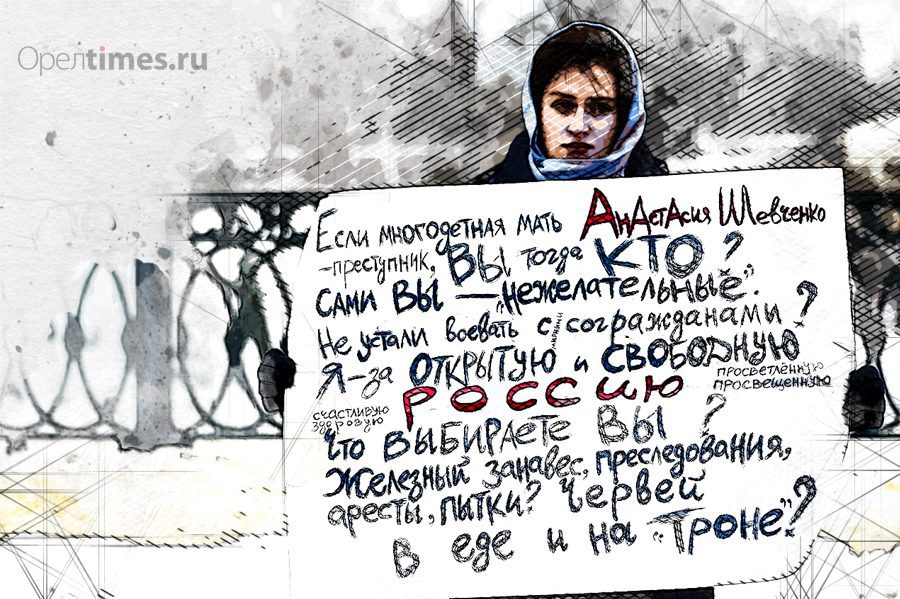 Орелtimes.ru
Если многодетная мать Анастасия Шевченко
-преступник, Вы тогда КТО?
Сами вы — "нежелательные".
Не устали воевать с мирными согражданами?
Я-за открытую и свободную
просветлённую
просвещенную
Россию
счастливую
здоровую
Что выбираете вы?
Железный занавес, преследования,
аресты, пытки? Червей
в еде и на "троне"?